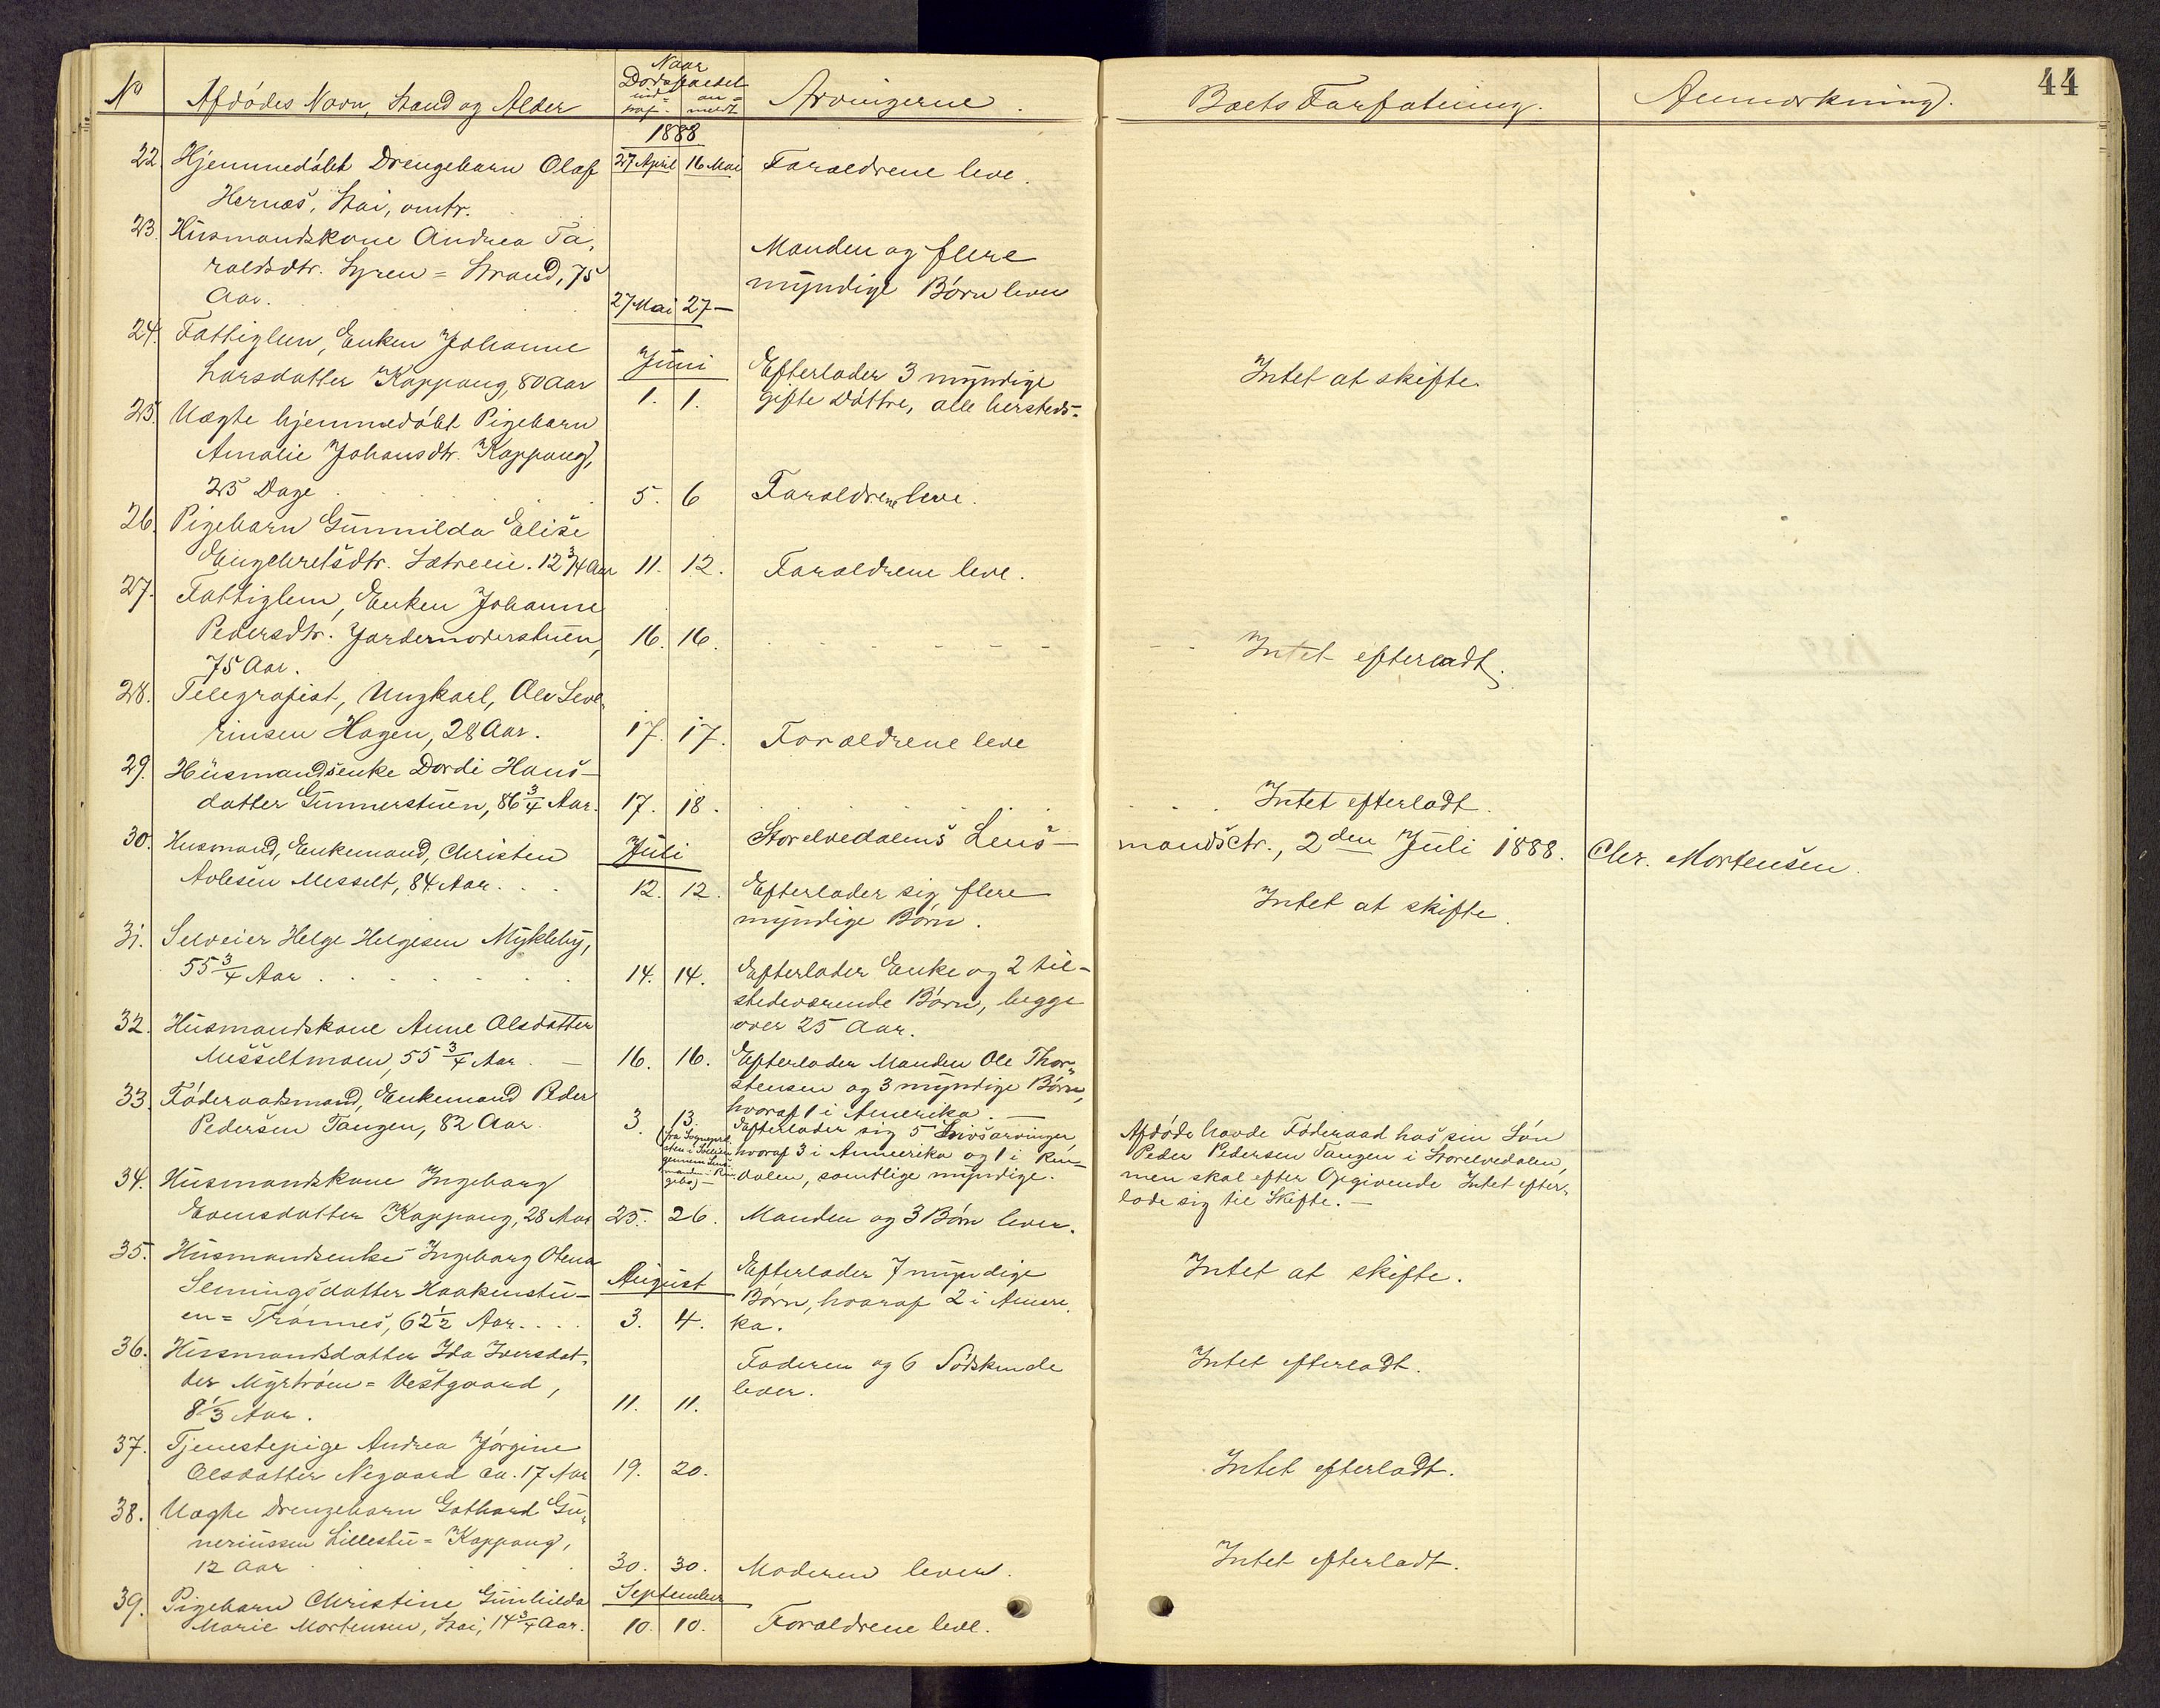 44
No Afdødes Navn, Stand og Alder Naar Dødsfaldet indtraf anmeldt Arvingerne. Boets Forfatning. Anmærkning.
1888
22. Hjemmedøbt Drengebarn Olaf 27 April 16 Mai Foræeldrene leve.
Hernæs, Stai, omtr.
23. Husmandskone Andrea Ta-
Manden og flere
raldsdtr. Syren = Strand, 75
myndige Børn lever
Aar. 27 Mai 27 —
24. Fattiglem, Enken Johanne
Juni
Efterlader 3 myndige
Larsdatter Koppang, 80 Aar Intet at skifte.
1. 1. gifte Døttre, alle hersteds.
25. Uægte hjemmedøbt Pigebarn
Amalie Johansdtr. Koppang,
25 Dage 5. 6 Forældrene leve.
26. Pigebarn Gunnilda Elise
Engebretsdtr. Sætreeie. 12 3/4 Aar 11. 12. Forældrene leve.
27. Fattiglem, Enken Johanne
Pedersdtr. Jordemoderstuen, 16. 16. Intet efterladt.
75 Aar.
28. Telegrafist, Ungkarl, Ole Seve-
rinsen Hagen, 28 Aar. 17. 17. Forældrene leve
29. Husmandsenke Dordi Hans-
datter Gunnerstuen, 86 3/4 Aar. 17. 18. Intet efterladt.
Storelvedalens Lens- mandsctr., 2den Juli 1888. Chr. Mortensen.
30. Husmand, Enkemand, Christen Juli
Aolesen Messelt, 84 Aar. 12. 12. Efterlader sig flere Intet at skifte.
myndige Børn.
31. Selveier Helge Helgesen Mykleby,
55 3/4 Aar 14. 14. Efterlader Enke og 2 til-
stedeværende Børn, begge
over 25 Aar.
32. Husmandskone Anne Olsdatter
Messeltmoen, 55 3/4 Aar. — 16. 16. Efterlader Manden Ole Thor-
stensen og 3 myndige Børn,
hvoraf 1 i Amerika. —
33. Føderaadsmand, Enkemand Peder
Pedersen Tangen, 82 Aar. 3. 13. Efterlader sig 5 Livsarvinger,
hvoraf 3 i Amerika og 1 i Ren-
dalen, samtlige myndige.
Afdøde havde Føderaad hos sin Søn
Peder Pedersen Tangen i Storelvedalen,
men skal efter Opgivende Intet efter-
lade sig til Skifte. —
34. Husmandskone Ingeborg
Evensdatter Koppang, 28 Aar 25. 26. Manden og 3 Børn lever.
35. Husmandsenke Ingeborg Olena
August
Efterlader 7 myndige Intet at skifte.
Semingsdatter Haakenstu-
Børn, hvoraf 2 i Ameri-
en = Trønnes, 62 1/2 Aar.... 3. 4. ka.
36. Husmandsdatter Ida Iversdat-
Faderen og 6 Sødskende Intet efterladt.
ter Myrtrøen = Vestgaard,
lever.
8 1/3 Aar. 11. 11.
37. Tjenestepige Andrea Jørgine
Olsdatter Negaard ca. 17 Aar 19. 20. Intet efterladt.
38. Uægte Drengebarn Gothard Gu-
neriussen Lillestu = Koppang,
12 Aar 30. 30. Moderen lever. Intet efterladt.
September
39. Pigebarn Christine Gunhilda
Marie Mortensen, Stai, 14 3/4 Aar. 10. 10. Forældrene leve.